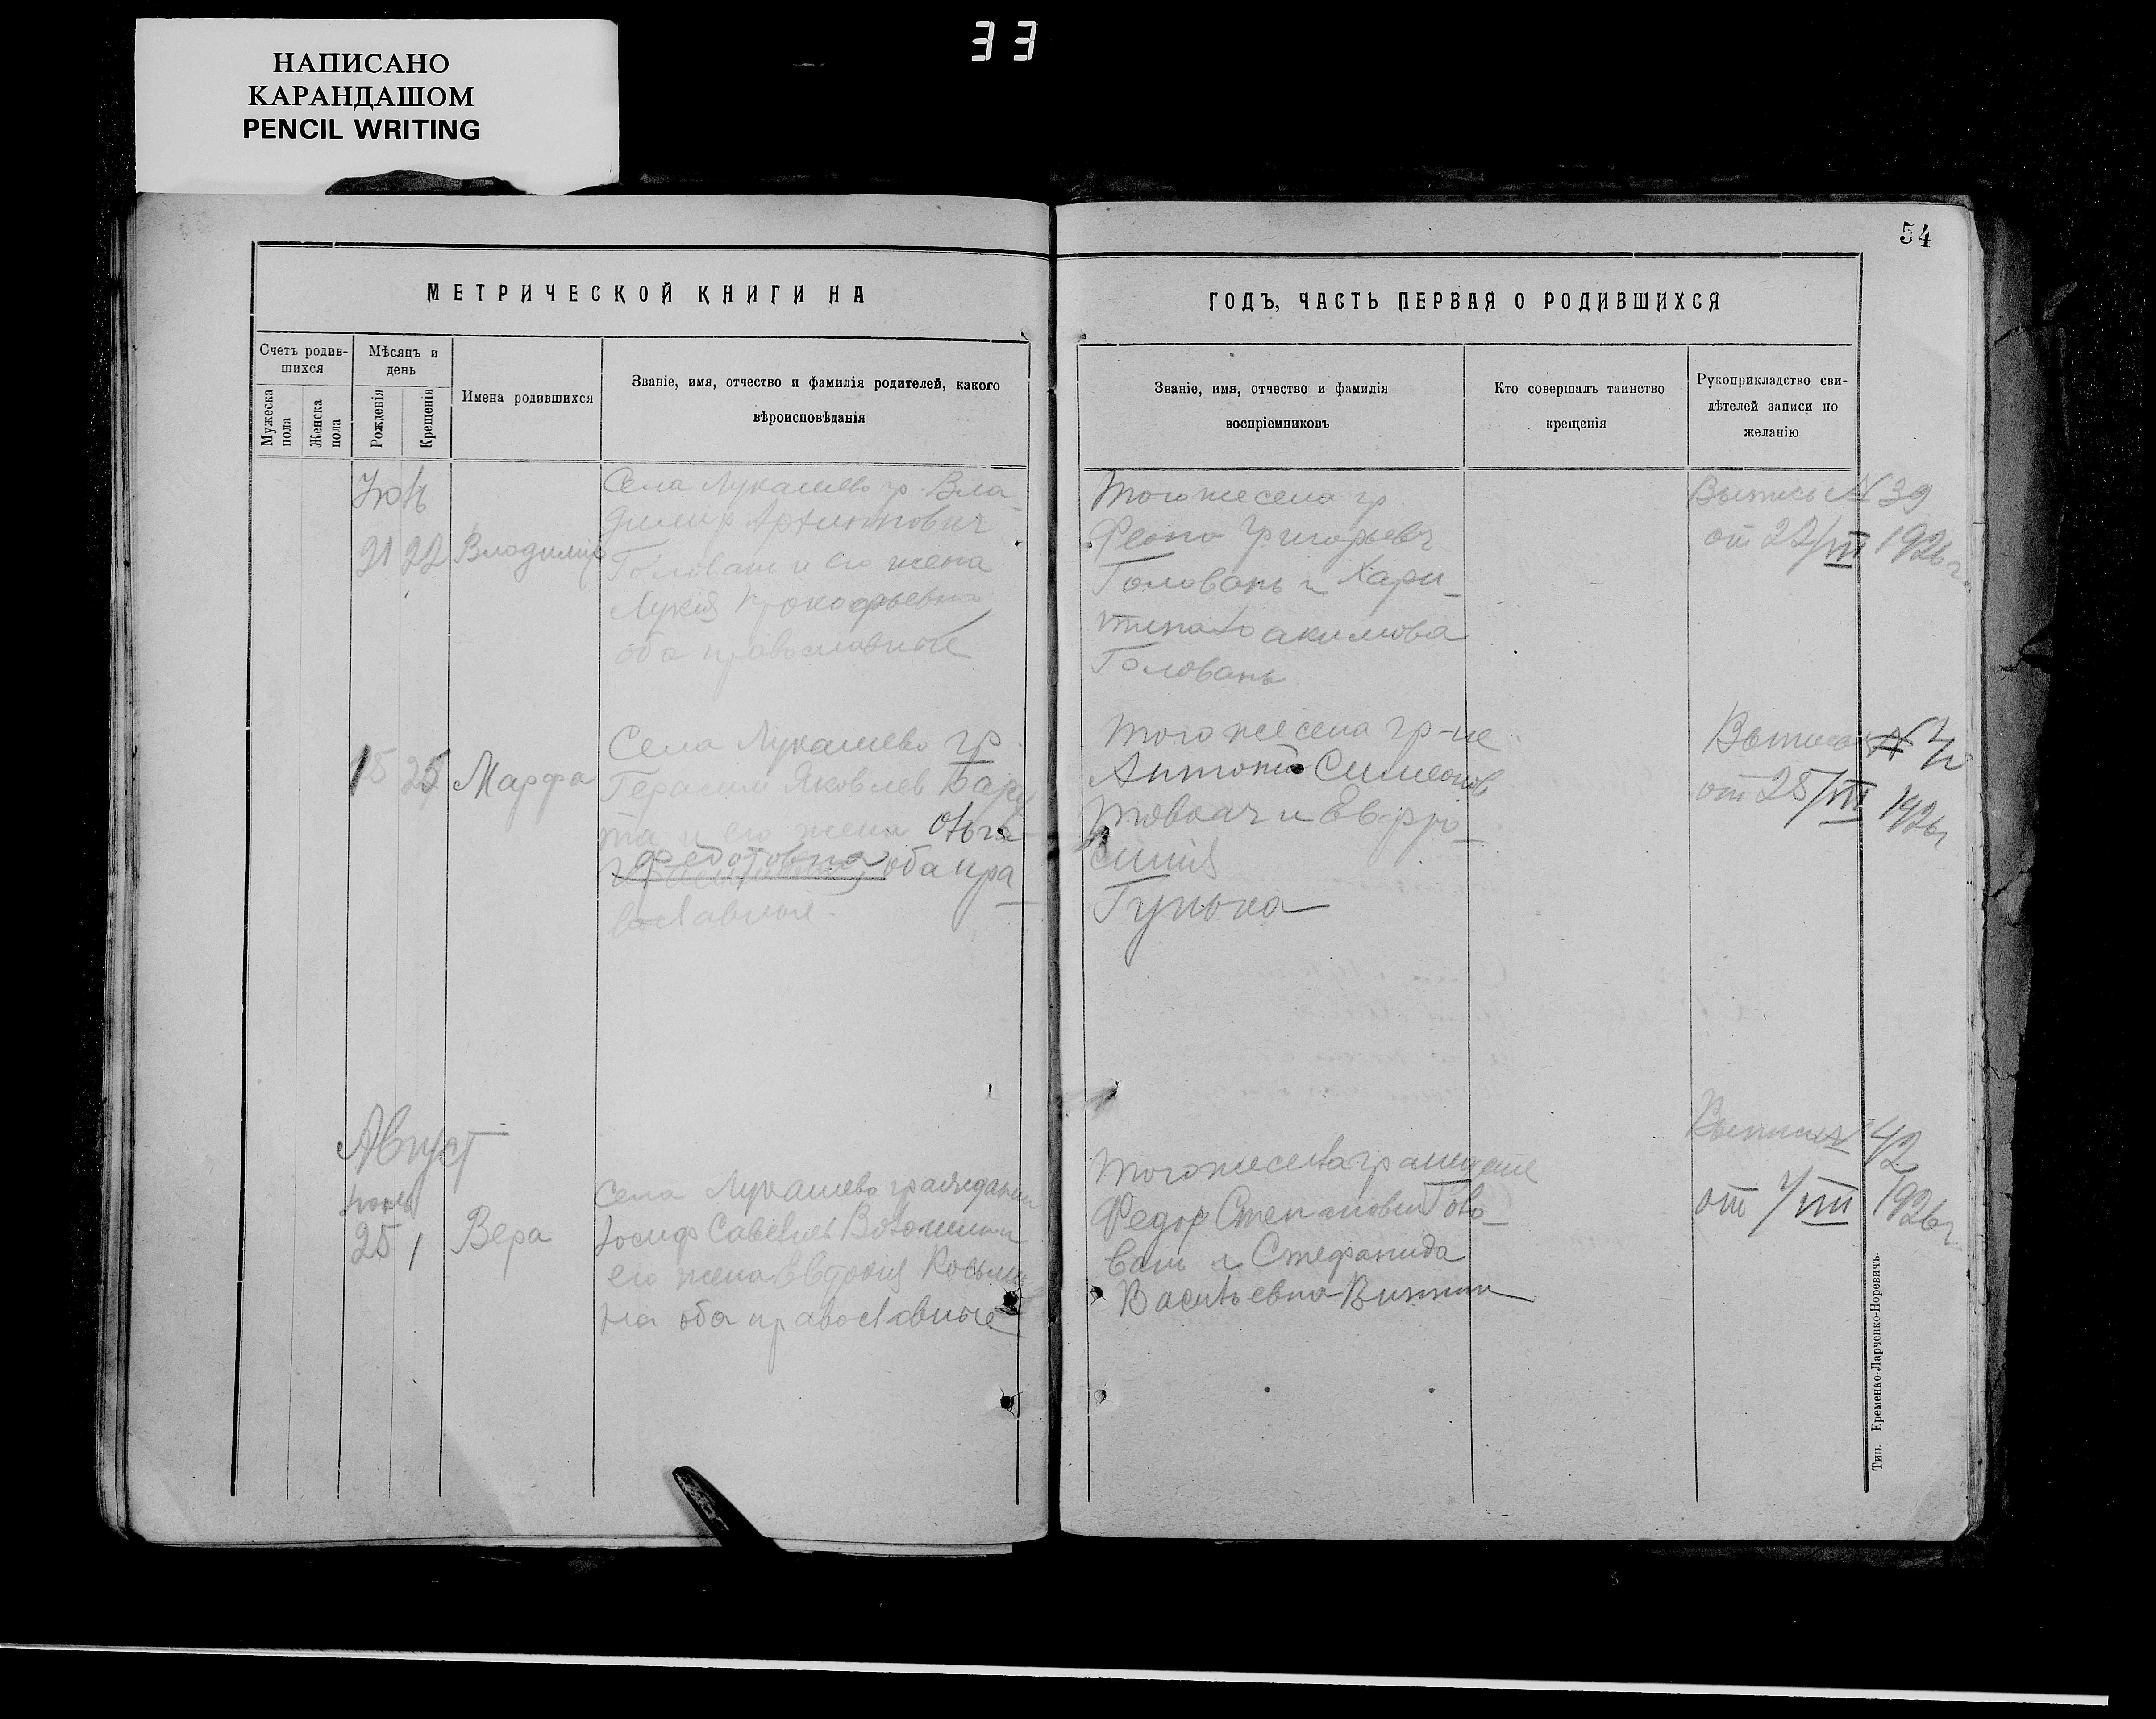 НАПИСАНО
КАРАНДАШОМ
PENCIL WRITING
33
54
МЕТРИЧЕСКОЙ КНИГИ НА
ГОДЪ, ЧАСТЬ ПЕРВАЯ О РОДИВШИХСЯ
Счетъ родив-
шихся
Мужеска
пола
Женска
пола
Мѣсяцъ и
день
Рожденія
Крещенія
Имена родившихся
Званіе, имя, отчество и фамилія родителей, какого
вѣроисповѣданія
Званіе, имя, отчество и фамилія
воспріемниковъ
Кто совершалъ таинство
крещенія
Рукоприкладство сви-
дѣтелей записи по
желанію
21 22 Владимир
Села Лукашево гр. Вла-
димир
Головань и его жена
Лукия Прокофьевна
оба православные
того же села гр.
Григорьевъ
Головань и Хари-
тина Іоакимова
Головань
Выпись N 39
от 22/VII 1926 г.
15 25 Марфа
Села Лукашево гр.
Герасим Яковлев
та и его жена Ольга
Федотовна оба пра-
вославные.
того же села гр-не
Антоний Симеонов
и Евфро-
синия
Выпись N
от 25/VII 1926 г
Август
25 1 Вера
Села Лукашево гражданин
Іосиф Савельев
его жена Евдокия
на оба православные
того же села граждане
Федор Степанович Голо-
вань и Стефанида
Васильевна
Выпись N 42
от 1/VIII 1926 г
Тип. Еременко-Ларченко-Норевичъ.